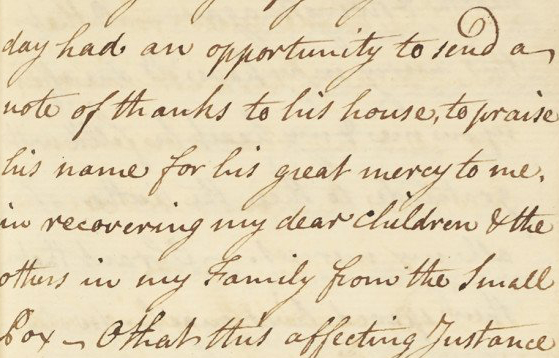 day had an opportunity to send a
note of thanks to his house, to praise
his name for his great mercy to me,
in recovering my dear children & the
others in my Family from the Small
Pox – O that this affecting Instance